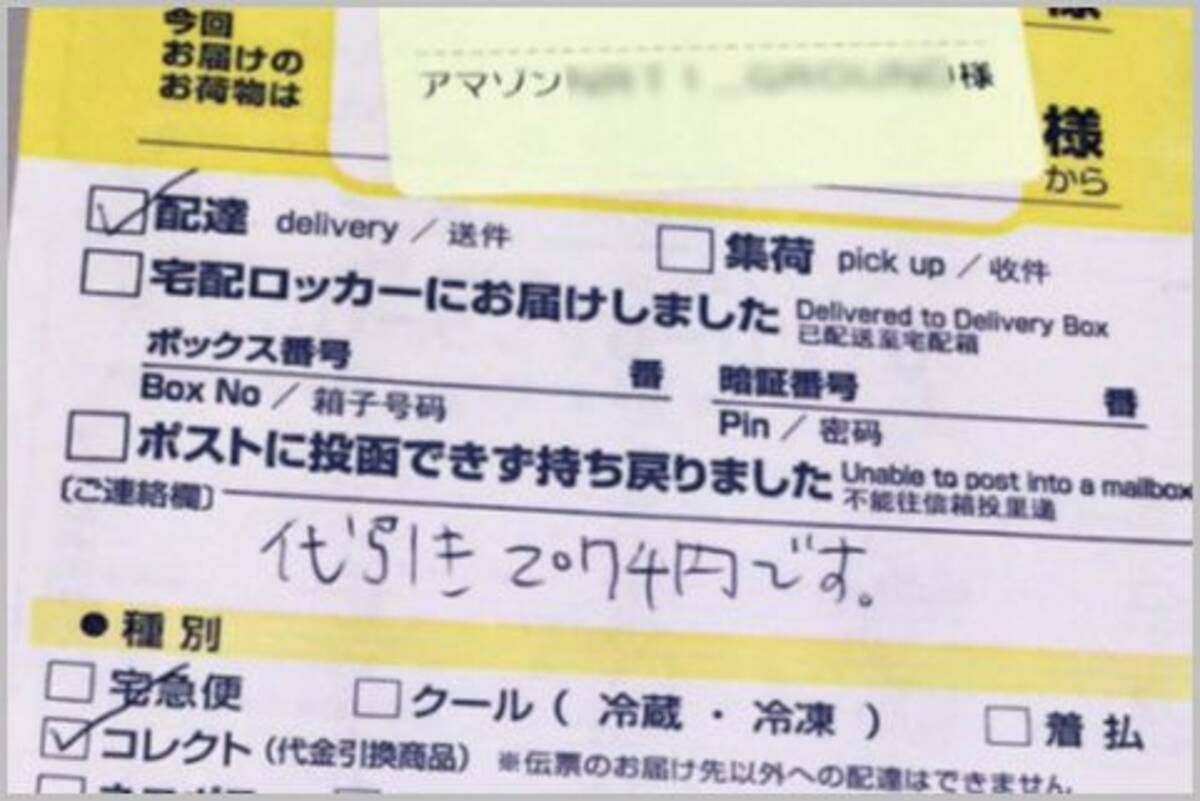 今回
お届けの
お荷物は
アマゾン 様
様
から
配達 delivery / 送件
集荷 pick up / 收件
宅配ロッカーにお届けしました Delivered to Delivery Box
已配送至宅配箱
ボックス番号 番
Box No / 箱子号码
暗証番号 番
Pin / 密码
ポストに投函できず持ち戻りました Unable to post into a mailbox
不能往信箱投里递
(ご連絡欄)
代引き 2074円です。
●種別
宅急便 クール ( 冷蔵 ・ 冷凍 ) 着払
コレクト (代金引換商品) ※伝票のお届け先以外への配達はできません